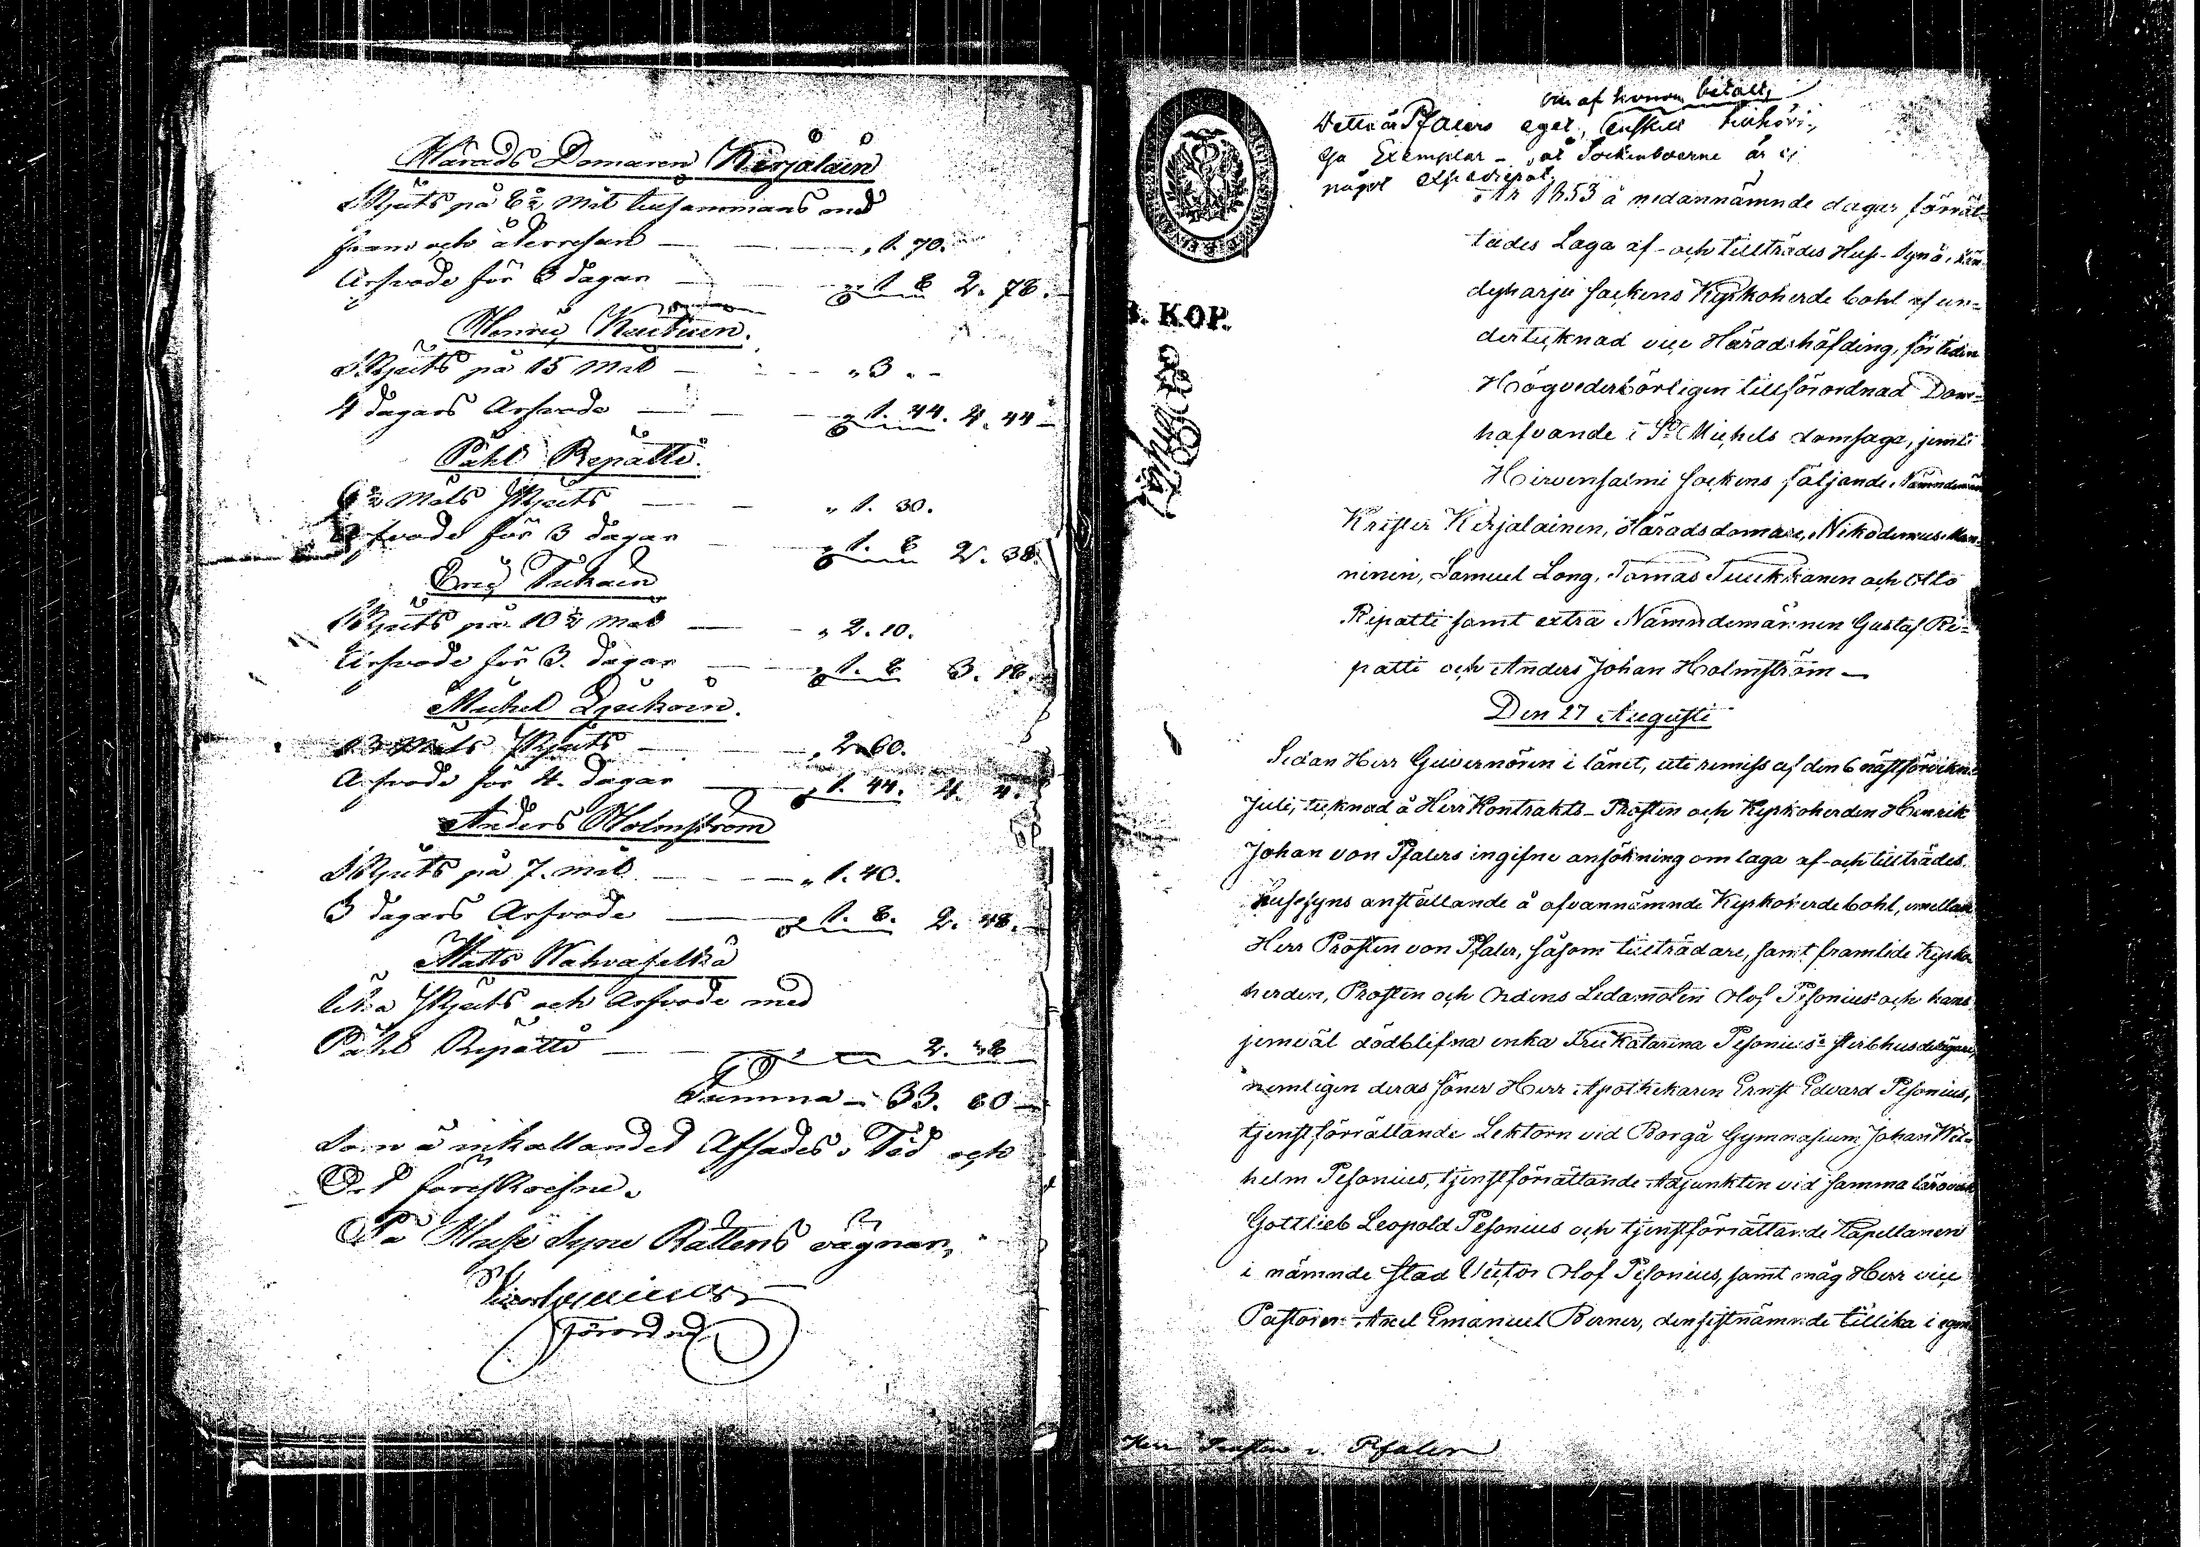 Härads Domaren Kirjalain
Skjuts på 8½ Mil tillsammans med
fram och återresan — — „ 1. 70.
Arfvode för 3 dagar — „ 1. 8 2. 78.
Henric Kautiain.
Skjuts på 15 Mil — — „ 3 „ -
4 dagars Arfvode — — „ 1. 44. 4. 44
Påhl Repatti.
6½ Mils Skjuts — — „ 1. 30.
Arfvode för 3 dagar — „ 1. 8 2. 38.
Eric Tukain
Skjuts på 10½ Mil — „ 2. 10.
Arfvode för 3. dagar — „ 1. 8 3. 18.
Michel
13 Mils Skjuts — „ 2. 60.
Arfvode för 4. dagar — „ 1. 44. 4. 4.
Anders Holmström
Skjuts på 7. mil — — „ 1. 40.
3 dagars Arfvode — „ 1. 8. 2. 48.
Matts Wahvaselkä
lika Skjuts och Arfvode med
Påhl Repatti — — 2. 38
Summa — 33. 60 —
Som å inkallandet Afsades. Tid och
Ort föreskrefne.
På Huse Syne Rättens vägnar,
förordnad
och af honom betalt,
Detta är Pfalers eget, enskilt tillhöri-
ga Exemplar — åt Sockneboerne är ej
något expedierat.
B. KOP.
År 1853 å nedannämnde dagar förrät-
tades Laga af- och tillträdes Huse-Syn å Kan-
gasharju sockens Kyrkoherde bohl af un-
dertecknad vice Häradshöfding, för tiden
Högvederbörligen tillförordnad Dom-
hafvande i St Michels domsaga, jemte
Hirvensalmi sockens följande Nämndemän
Krister Kirjalainen, Häradsdomare, Nikodemus Man-
ninen, Samuel Long, Tomas Tuukkanen och Otto
Ripatti samt extra Nämndemännen Gustaf Ri-
patti och Anders Johan Holmström —
Den 27 Augusti
Sedan Herr Guvernören i länet, uti remiss af den 6 nästförvikne
Juli, tecknad å Herr Kontrakts-Prosten och Kyrkoherden Henrik
Johan von Pfalers ingifne ansökning om laga af- och tillträdes
husesyns anställande å ofvannämnde Kyrkoherdebohl, emellan
Herr Prosten von Pfaler, såsom tillträdare, samt framlidne Kyrko-
herden, Prosten och Ordens Ledamoten Olof Pesonius' och hans
jemväl dödblefna enka Fru Katarina Pesonius's sterbhusdelägare,
nemligen deras söner Herr Apothekaren Ernst Edvard Pesonius,
tjenstförrättande Lektorn vid Borgå Gymnasium Johan Wil-
helm Pesonius, tjenstförrättande Adjunkten vid samma läroverk
Gottlieb Leopold Pesonius och tjenstförrättande Kapellanen
i nämnde stad Victor Olof Pesonius, samt måg Herr vice
Pastoren Axel Emanuel Berner, den sistnämnde tillika i egen
Herr Prosten v. Pfaler